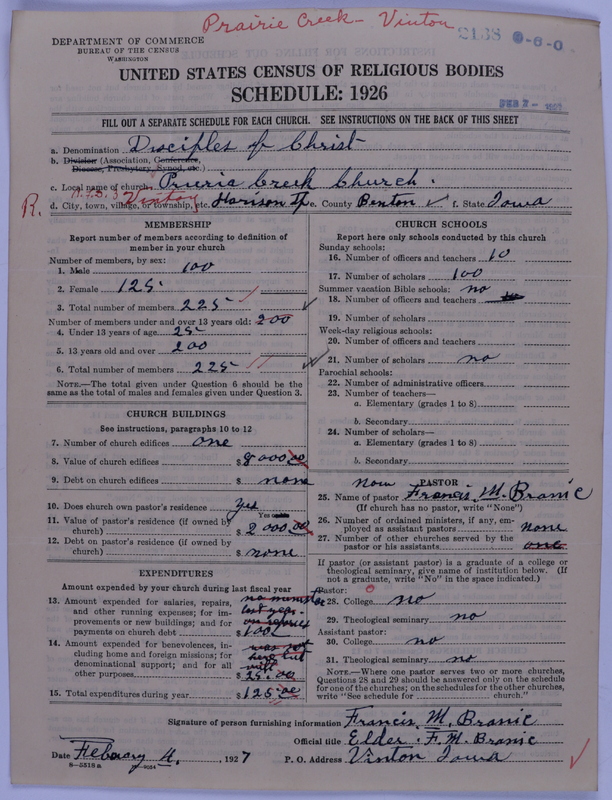 Prairie Creek - Vinton
2138 9-6-0
DEPARTMENT OF COMMERCE
BUREAU OF THE CENSUS
WASHINGTON
UNITED STATES CENSUS OF RELIGIOUS BODIES
SCHEDULE: 1926
FILL OUT A SEPARATE SCHEDULE FOR EACH CHURCH. SEE INSTRUCTIONS ON THE BACK OF THIS SHEET
a. Denomination Disciples of Christ
b. Division (Association, Conference, Diocese, Presbytery, Synod, etc.)
c. Local name of church Prieria Creek Church.
R. R.F.D. 3 Vinton
d. City, town, village, or township, etc. Harison Tp e. County Benton f. State Iowa
MEMBERSHIP
Report number of members according to definition of
member in your church
Number of members, by sex:
1. Male 100
2. Female 125
3. Total number of members 225
Number of members under and over 13 years old: 200
4. Under 13 years of age 25
5. 13 years old and over 200
6. Total number of members 225
NOTE.—The total given under Question 6 should be the
same as the total of males and females given under Question 3.
CHURCH BUILDINGS
See instructions, paragraphs 10 to 12
7. Number of church edifices one
8. Value of church edifices $ 8000 00
9. Debt on church edifices $ none
10. Does church own pastor's residence yes
Yes or no
11. Value of pastor's residence (if owned by
church) $ 2000 00
12. Debt on pastor's residence (if owned by
church) $ none
EXPENDITURES
Amount expended by your church during last fiscal year
13. Amount expended for salaries, repairs,
and other running expenses; for im-
provements or new buildings; and for
payments on church debt
no minister
last year
$ 100
14. Amount expended for benevolences, in-
cluding home and foreign missions; for
denominational support; and for all
other purposes $ 25.00
15. Total expenditures during year $ 125.00
CHURCH SCHOOLS
Report here only schools conducted by this church
Sunday schools:
16. Number of officers and teachers 10
17. Number of scholars 100
Summer vacation Bible schools: no
18. Number of officers and teachers
19. Number of scholars
Week-day religious schools:
20. Number of officers and teachers
21. Number of scholars no
Parochial schools:
22. Number of administrative officers
23. Number of teachers—
a. Elementary (grades 1 to 8)
b. Secondary
24. Number of scholars—
a. Elementary (grades 1 to 8)
b. Secondary
now PASTOR
25. Name of pastor Francis M. Branic
(If church has no pastor, write "None")
26. Number of ordained ministers, if any, em-
ployed as assistant pastors none
27. Number of other churches served by the
pastor or his assistants one
If pastor (or assistant pastor) is a graduate of a college or
theological seminary, give name of institution below. (If
not a graduate, write "No" in the space indicated.)
Pastor:
28. College no
29. Theological seminary no
Assistant pastor:
30. College no
31. Theological seminary no
NOTE.—Where one pastor serves two or more churches,
Questions 28 and 29 should be answered only on the schedule
for one of the churches; on the schedules for the other churches,
write "See schedule for church."
Signature of person furnishing information Francis M. Branic
Official title Elder F. M. Branic
Date Febuary 4, 1927 P. O. Address Vinton Iowa
8-5518 a